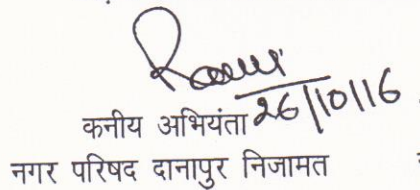 कनीय अभियंता 26/10/16
नगर परिषद दानापुर निजामत